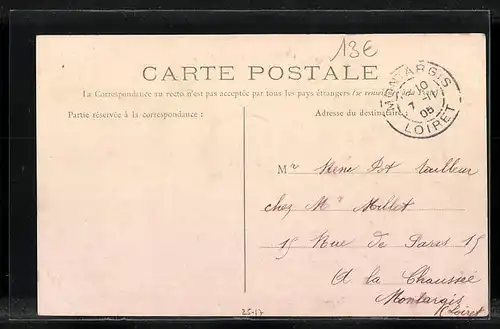 13€
CARTE POSTALE
La Correspondance au recto n'est pas acceptée par tous les pays étrangers (se
Partie réservée à la correspondance :
Adresse du destinataire
MONTARGIS
10
7 -11
05
LOIRET
Mr René Pot tailleur
chez Mr Millet
15 Rue de Paris 15
A la Chaussée
Montargis
Loiret
25-17